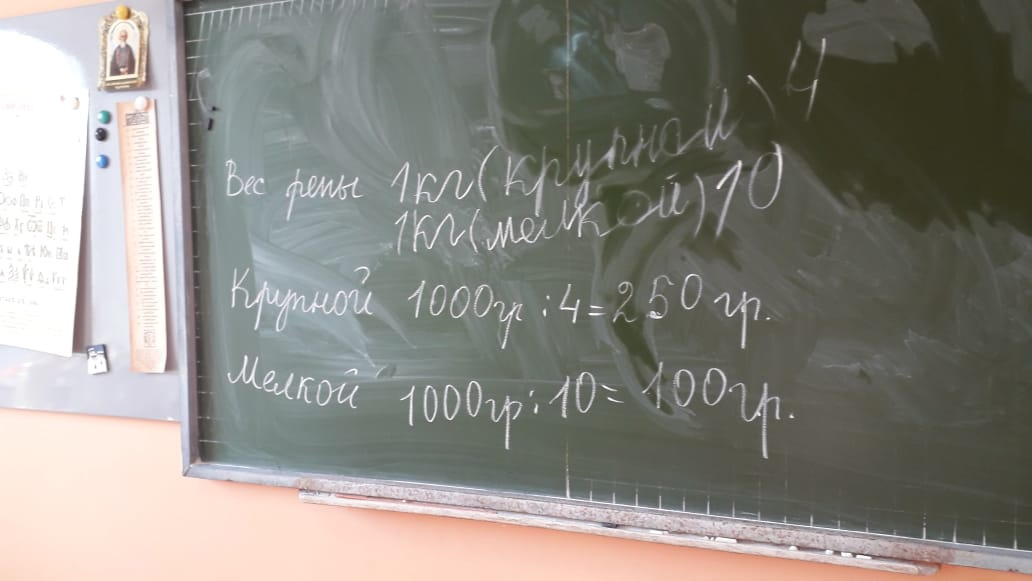 Вес репы 1кг(крупной) 4
1кг(мелкой) 10
Крупной 1000гр : 4 = 250 гр.
Мелкой 1000гр : 10 = 100 гр.